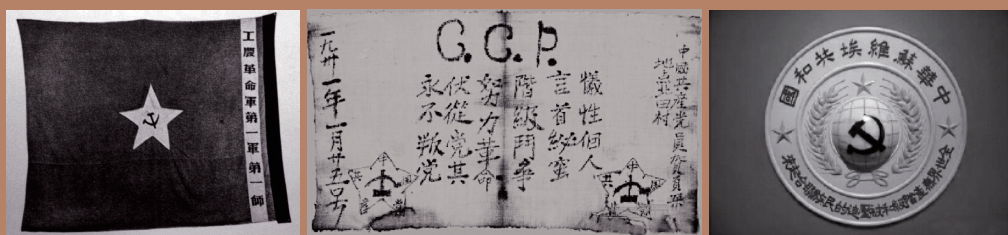 工農革命軍第一軍第一師
C.C.P.
中國共産党員
地点北田村
犧性個人
言首秘蜜
階級鬥爭
努力革命
伏從党其
永不叛党
一九卅一年一月廿五号
中華蘇維埃共和國
全世界無產階級和被壓迫的民族聯合起來